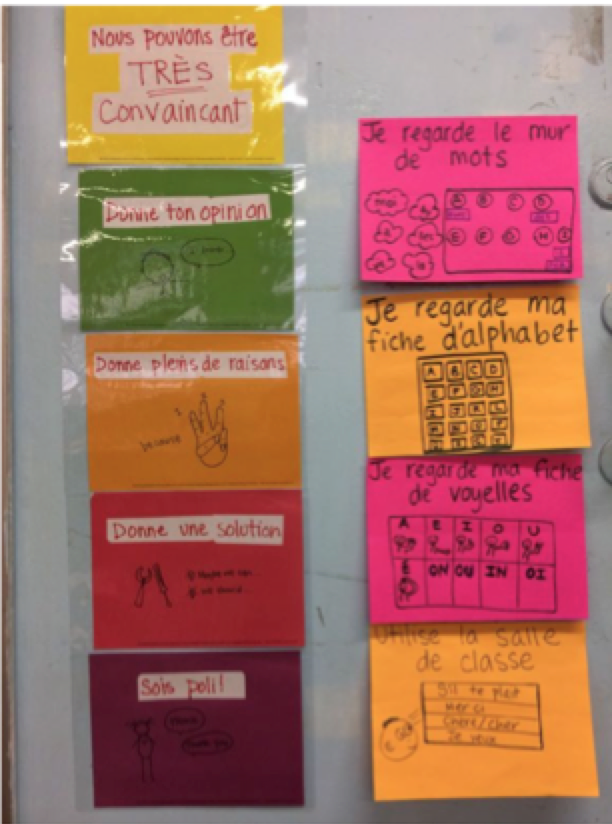 Nous pouvons être
TRÈS
Convaincant
Donne ton opinion
Donne pleins de raisons
because
Donne une solution
Maybe we can...
We should...
Sois poli!
Please
Thank you
Je regarde le mur
de mots
moi
A B C D
E F G H I
Je regarde ma
fiche d'alphabet
A B C D
E F G H
I J K L
Je regarde ma fiche
de voyelles
A E I O U
É ON OU IN OI
Utilise la salle
de classe
S'il te plait
Merci
Chère/Cher
Je veux